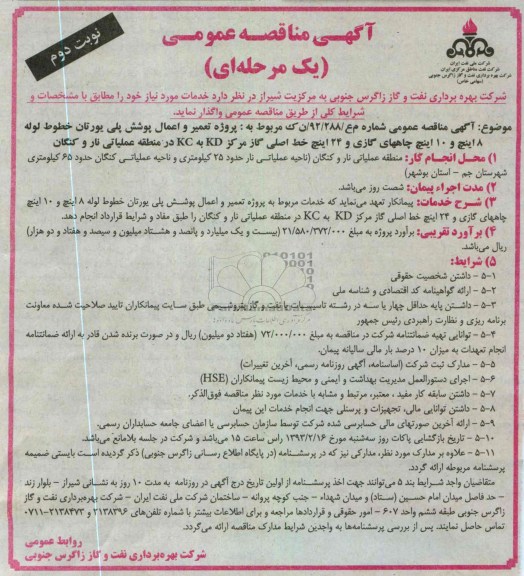 نوبت دوم
آگهی مناقصه عمومی
(یک مرحله‌ای)
شرکت ملی نفت ایران
شرکت نفت مناطق مرکزی ایران
شرکت بهره برداری نفت و گاز زاگرس جنوبی
(سهامی خاص)
شرکت بهره برداری نفت و گاز زاگرس جنوبی به مرکزیت شیراز در نظر دارد خدمات مورد نیاز خود را مطابق با مشخصات و
شرایط کلی از طریق مناقصه عمومی واگذار نماید.
موضوع: آگهی مناقصه عمومی شماره م‌ع/۹۲/۲۸۸/ن‌ک مربوط به : پروژه تعمیر و اعمال پوشش پلی یورتان خطوط لوله
۸ اینچ و ۱۰ اینچ چاههای گازی و ۲۴ اینچ خط اصلی گاز مرکز KD به KC در منطقه عملیاتی نار و کنگان
۱) محل انجام کار: منطقه عملیاتی نار و کنگان (ناحیه عملیاتی نار حدود ۲۵ کیلومتری و ناحیه عملیاتی کنگان حدود ۶۵ کیلومتری
شهرستان جم – استان بوشهر)
۲) مدت اجراء پیمان: شصت روز می‌باشد.
۳) شرح خدمات: پیمانکار تعهد می‌نماید که خدمات مربوط به پروژه تعمیر و اعمال پوشش پلی یورتان خطوط لوله ۸ اینچ و ۱۰ اینچ
چاههای گازی و ۲۴ اینچ خط اصلی گاز مرکز KD به KC در منطقه عملیاتی نار و کنگان را طبق مفاد و شرایط قرارداد انجام دهد.
۴) برآورد تقریبی: برآورد پروژه به مبلغ ۲۱/۵۸۰/۳۷۲/۰۰۰ (بیست و یک میلیارد و پانصد و هشتاد میلیون و سیصد و هفتاد و دو هزار)
ریال می‌باشد.
۵) شرایط:
۵-۱ – داشتن شخصیت حقوقی
۵-۲ – ارائه گواهینامه کد اقتصادی و شناسه ملی
۵-۳ – داشتن پایه حداقل چهار یا سه در رشته تاسیسات یا نفت و گاز پتروشیمی طبق سایت پیمانکاران تایید صلاحیت شده معاونت
برنامه ریزی و نظارت راهبردی رئیس جمهور
۵-۴ – توانایی تهیه ضمانتنامه شرکت در مناقصه به مبلغ ۷۲/۰۰۰/۰۰۰ (هفتاد دو میلیون) ریال و در صورت برنده شدن قادر به ارائه ضمانتنامه
انجام تعهدات به میزان ۱۰ درصد بار مالی سالیانه پیمان.
۵-۵ – مدارک ثبت شرکت (اساسنامه، آگهی روزنامه رسمی، آخرین تغییرات)
۵-۶ – اجرای دستورالعمل مدیریت بهداشت و ایمنی و محیط زیست پیمانکاران (HSE)
۵-۷ – داشتن سابقه کار مفید ، معتبر، مرتبط و مشابه با خدمات مورد نظر مناقصه فوق‌الذکر.
۵-۸ – داشتن توانایی مالی، تجهیزات و پرسنلی جهت انجام خدمات این پیمان
۵-۹ – ارائه آخرین صورتهای مالی حسابرسی شده شرکت توسط سازمان حسابرسی یا اعضای جامعه حسابداران رسمی.
۵-۱۰ – تاریخ بازگشایی پاکات روز سه‌شنبه مورخ ۱۳۹۳/۲/۱۶ راس ساعت ۱۵ می‌باشد و شرکت در جلسه بلامانع می‌باشد.
۵-۱۱ – علاوه بر مدارک مورد نظر، مدارکی نیز که در پرسشنامه (در پایگاه اطلاع رسانی زاگرس جنوبی) ذکر گردیده است بایستی ضمیمه
پرسشنامه مربوطه ارائه گردد.
متقاضیان واجد شرایط بند ۵ می‌توانند جهت اخذ پرسشنامه از اولین تاریخ درج آگهی در روزنامه به مدت ۱۰ روز به نشانی شیراز – بلوار زند
– حد فاصل میدان امام حسین (ستاد) و میدان شهداء – جنب کوچه پروانه – ساختمان شرکت ملی نفت ایران – شرکت بهره‌برداری نفت و گاز
زاگرس جنوبی طبقه ششم واحد ۶۰۷ – امور حقوقی و قراردادها مراجعه و برای اطلاعات بیشتر با شماره تلفن‌های ۲۱۳۸۳۹۶ و ۲۱۳۸۴۷۳-۰۷۱۱
تماس حاصل نمایند. پس از بررسی پرسشنامه‌ها به واجدین شرایط مدارک مناقصه ارائه می‌گردد.
روابط عمومی
شرکت بهره‌برداری نفت و گاز زاگرس جنوبی